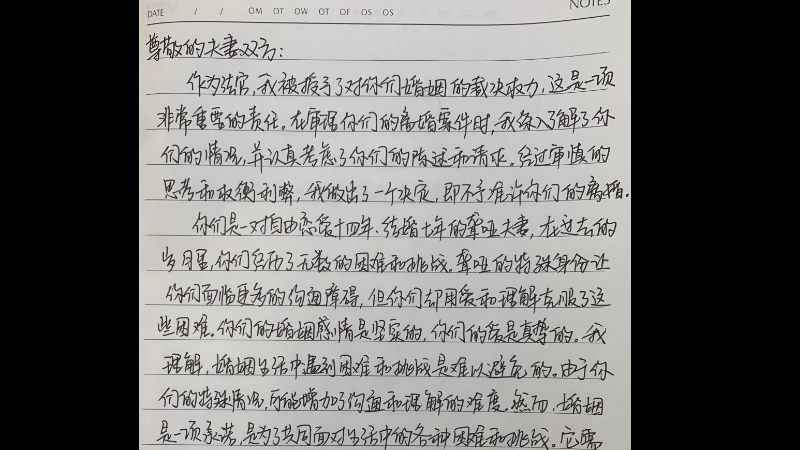 NOTES
DATE / / OM OT OW OT OF OS OS
尊敬的夫妻双方：
作为法官，我被授予了对你们婚姻的裁决权力，这是一项
非常重要的责任。在审理你们的离婚案件时，我深入了解了你
们的情况，并认真考虑了你们的陈述和请求。经过审慎的
思考和权衡利弊，我做出了一个决定，即不予准许你们的离婚。
你们是一对自由恋爱十四年、结婚七年的聋哑夫妻，在过去的
岁月里，你们经历了无数的困难和挑战。聋哑的特殊身份让
你们面临更多的沟通障碍，但你们却用爱和理解克服了这
些困难。你们的婚姻感情是坚实的，你们的爱是真挚的。我
理解，婚姻生活中遇到困难和挑战是难以避免的。由于你
们的特殊情况，可能增加了沟通和理解的难度。然而，婚姻
是一项承诺，是为了共同面对生活中的各种困难和挑战。它需